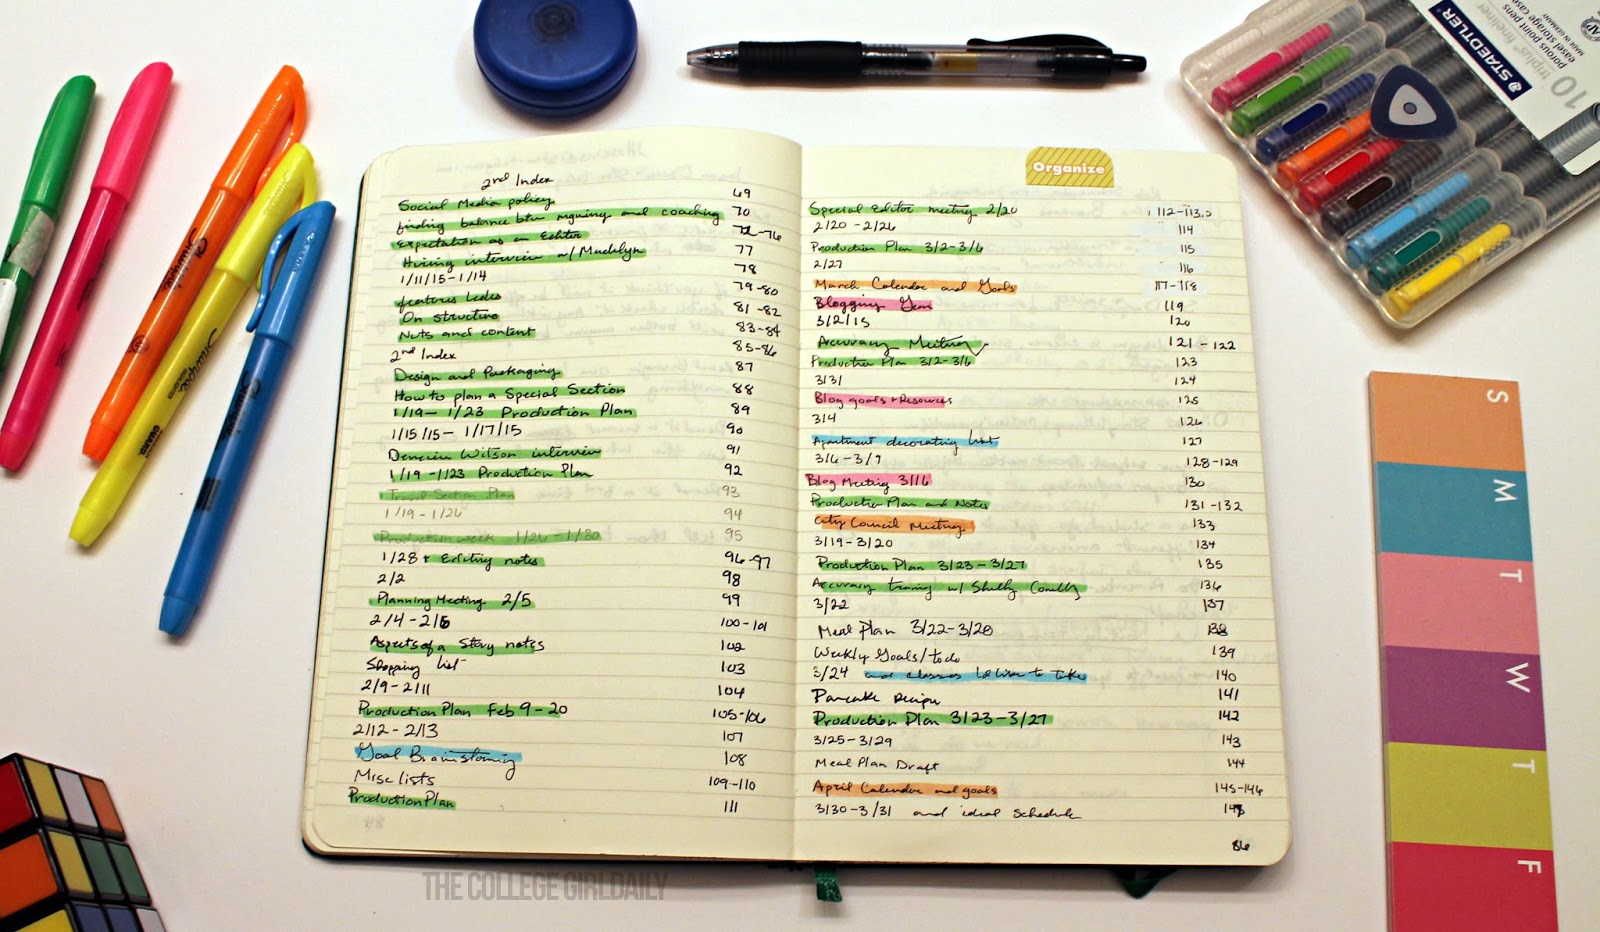 2nd Index
Social Media policy 69
finding balance btw mgning and coaching 70
Expectation as an Editor 72-76
Hiring interview w/ Madelyn 77
1/11/15-1/14 78
features ledes 79-80
On structure 81-82
Nuts and content 83-84
2nd Index 85-86
Design and Packaging 87
How to plan a Special Section 88
1/19 - 1/23 Production Plan 89
1/15/15 - 1/17/15 90
Wilson interview 91
1/19 - 1/23 Production Plan 92
Travel Section Plan 93
1/19 - 1/26 94
Production week 1/26 - 1/30 95
1/28 + Editing notes 96-97
2/2 98
Planning Meeting 2/5 99
2/4 - 2/6 100-101
Aspects of a Story notes 102
Shopping list 103
2/9 - 2/11 104
Production Plan Feb 9 - 20 105-106
2/12 - 2/13 107
Goal Brainstorming 108
Misc lists 109-110
Production Plan 111
Organize
Special Editor meeting 2/20 112-113
2/20 - 2/26 114
Production Plan 3/2-3/6 115
2/27 116
March Calendar and Goals 117-118
Blogging Gen 119
3/2/15 120
Accuracy Meeting 121-122
Production Plan 3/2-3/6 123
3/31 124
Blog goals + Resources 125
3/4 126
Apartment decorating list 127
3/6 - 3/9 128-129
Blog Meeting 3/16 130
Production Plan and Notes 131-132
City Council Meeting 133
3/19 - 3/20 134
Production Plan 3/23 - 3/27 135
Accuracy training w/ Shelly 136
3/22 137
Meal Plan 3/22 - 3/28 138
Weekly Goals/to do 139
3/24 and classes Id like to take 140
Pancake recipe 141
Production Plan 3/23 - 3/27 142
3/25 - 3/29 143
Meal Plan Draft 144
April Calendar and goals 145-146
3/30 - 3/31 and ideal schedule 147
86
STAEDTLER
10 triplus fineliner
porous point pens
easel storage case
MADE IN GERMANY
AP
Sharpie
Sharpie
Sharpie
S
M
T
W
T
F
THE COLLEGE GIRL DAILY